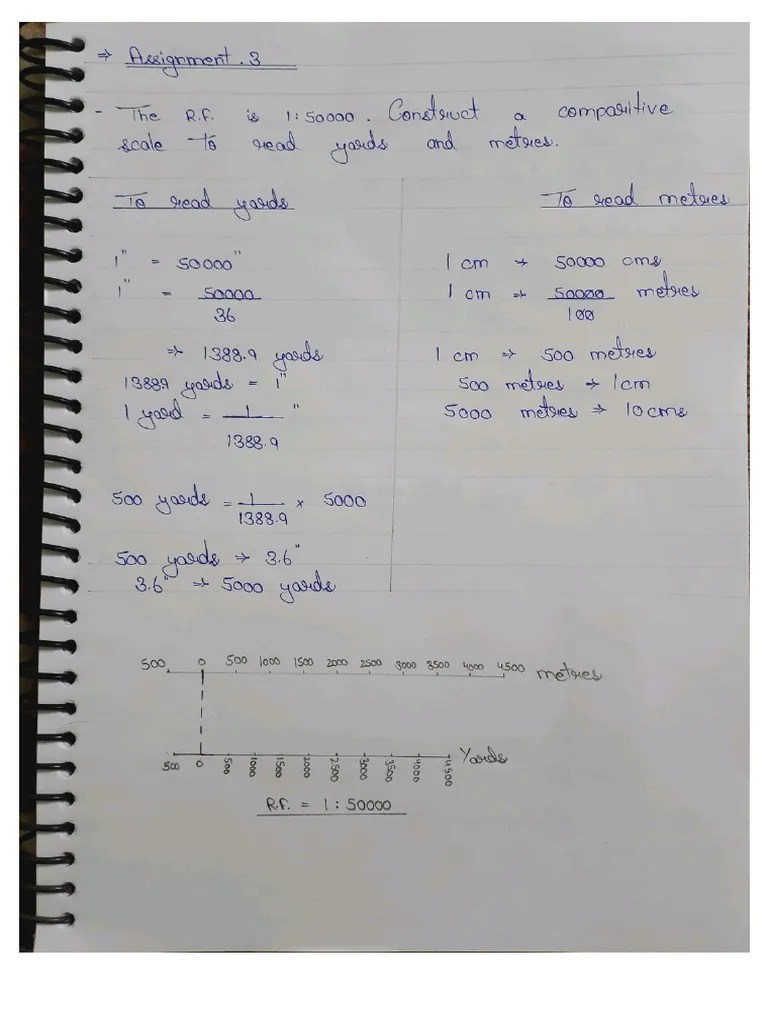 ⇒ Assignment. 3
- The R.F. is 1:50000. Construct a comparitive
scale to read yards and metres.
To read yards
1" = 50000"
1" = 50000
36
→ 1388.9 yards
13889 yards = 1"
1 yard = 1 "
1388.9
500 yards = 1 × 5000
1388.9
500 yards → 3.6"
3.6" → 5000 yards
To read metres
1 cm → 50000 cms
1 cm → 50000 metres
100
1 cm → 500 metres
500 metres → 1cm
5000 metres → 10cms
500 0 500 1000 1500 2000 2500 3000 3500 4000 4500 metres
500 0 500 1000 1500 2000 2500 3000 3500 4000 4500 Yards
R.F. = 1 : 50000